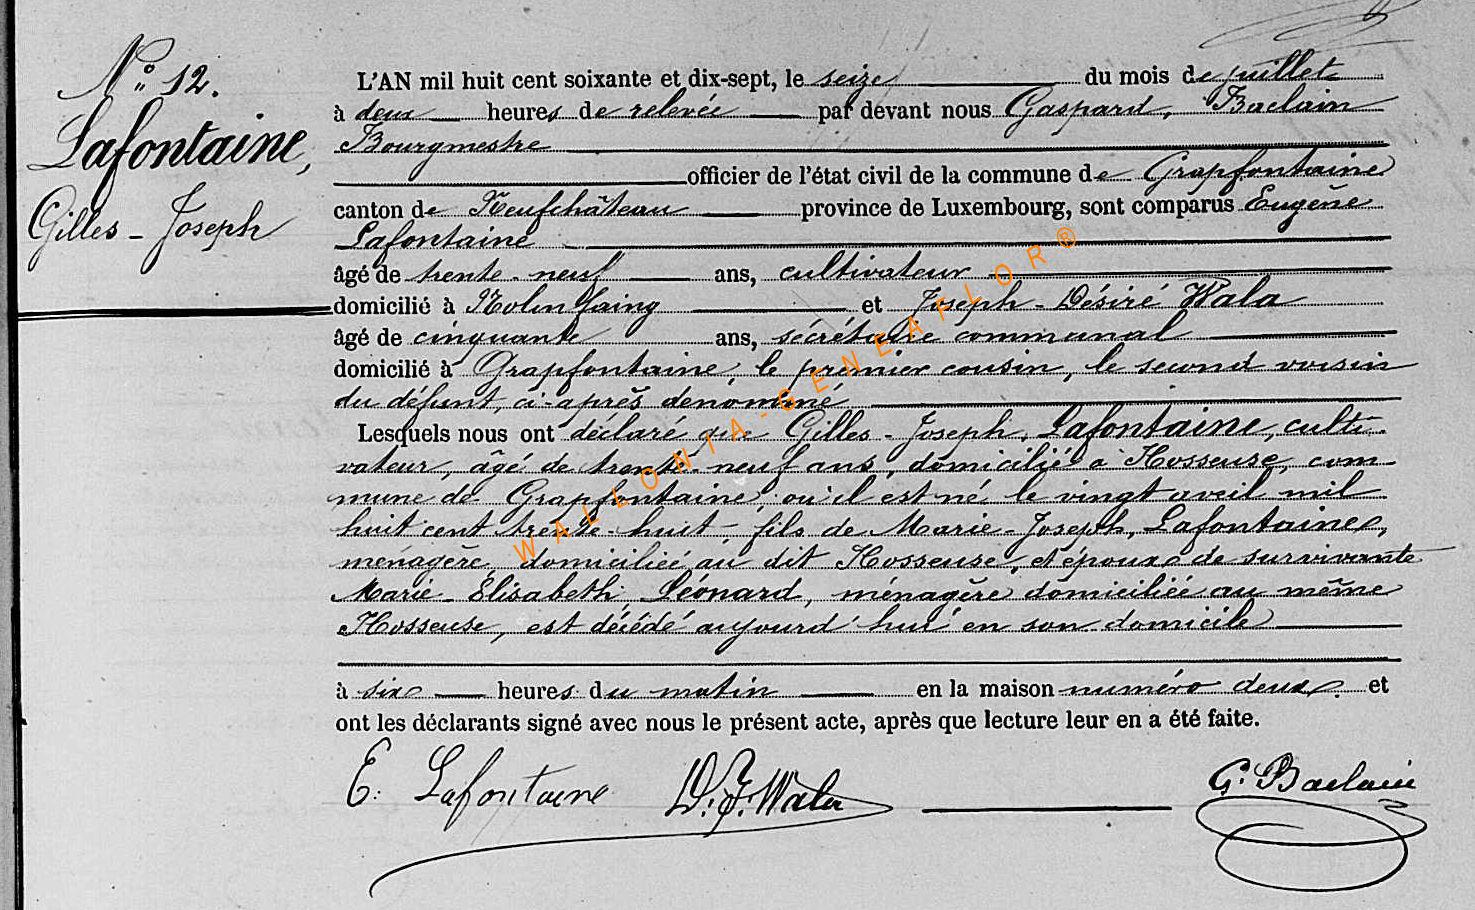 N° 12.
Lafontaine,
Gilles - Joseph
L'AN mil huit cent soixante et dix-sept, le seize du mois de juillet
à deux heures de relevée par devant nous Gaspard, Baclain
Bourgmestre
officier de l'état civil de la commune de Grapfontaine
canton de Neufchâteau province de Luxembourg, sont comparus Eugène
Lafontaine
âgé de trente-neuf ans, cultivateur
domicilié à Molinfaing et Joseph-Désiré Wala
âgé de cinquante ans, sécrétaire communal
domicilié à Grapfontaine, le premier cousin, le second voisin
du défunt, ci-après dénommé
Lesquels nous ont déclaré que Gilles-Joseph, Lafontaine, culti-
vateur, âgé de trente-neuf ans, domicilié à Hosseuse, com-
mune de Grapfontaine, où il est né le vingt avril mil
huit cent trente-huit, fils de Marie-Joseph, Lafontaine,
ménagère, domiciliée au dit Hosseuse, et époux de survivante
Marie-Élisabeth, Léonard, ménagère domiciliée au même
Hosseuse, est décédé aujourd'hui en son domicile
à six heures du matin en la maison numéro deux et
ont les déclarants signé avec nous le présent acte, après que lecture leur en a été faite.
E. Lafontaine D. J. Wala G. Baclain
WALLONIA-GENEAFLOR®